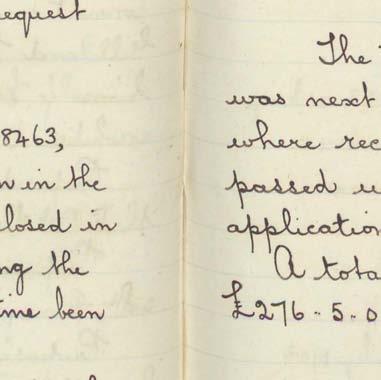 equest
8463,
in the
losed in
ng the
time been
The
was next
where rec
passed u
application
A tota
£276-5-0